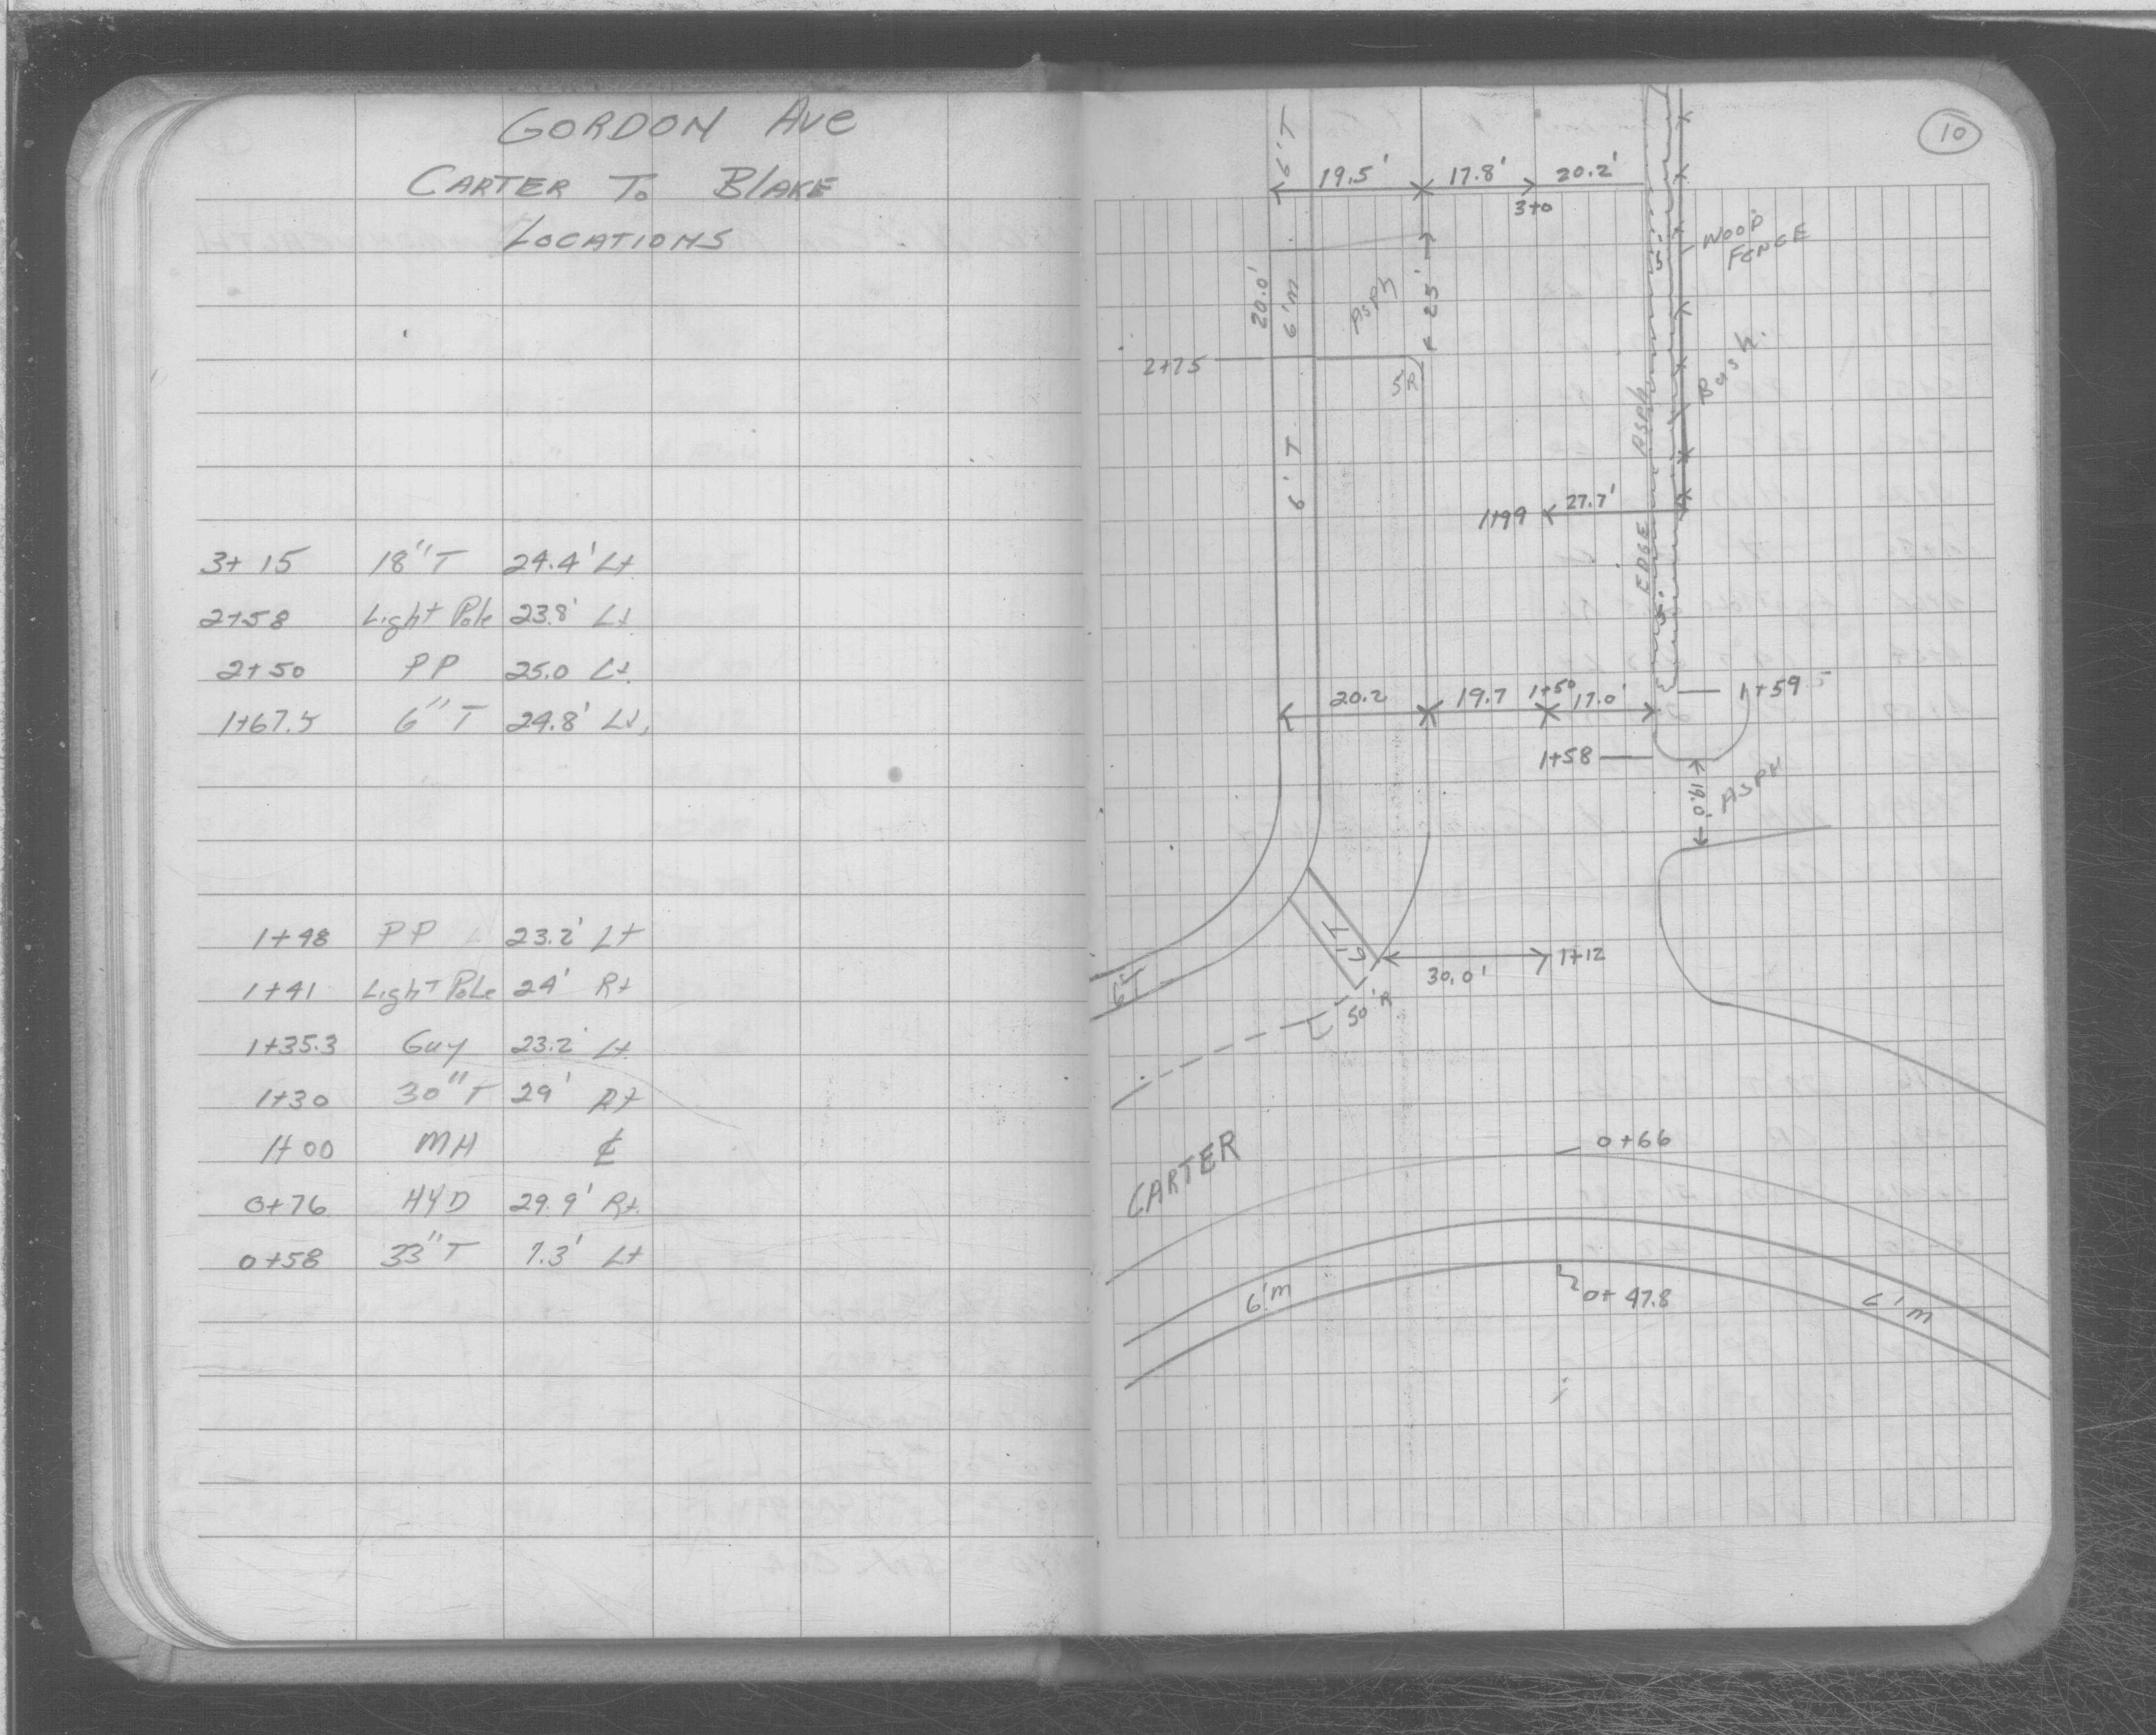 GORDON AVE
CARTER TO BLAKE
LOCATIONS
3+15 18"T 24.4' Lt
2+58 Light Pole 23.8' Lt
2+50 PP 25.0 Lt.
1+67.5 6"T 24.8' Lt,
1+48 PP 23.2' Lt
1+41 Light Pole 24' Rt
1+35.3 Guy 23.2' Lt
1+30 30"T 29' Rt
1+00 MH ℄
0+76 HYD 29.9' Rt.
0+58 33"T 7.3' Lt
10
6'T
19.5' 17.8' 20.2'
3+0
WOOD
FENCE
5'
20.0'
6'm
ASPH
25'
2+75
5'R
Bush.
EDGE ASPH
6'T
1+99 27.7'
5'
1+59.5
20.2 19.7 1+50 17.0'
1+58
19.0'
ASPH
6'T
30.0' 1+12
6'T
50'R
CARTER
0+66
6'm
0+47.8
6'm